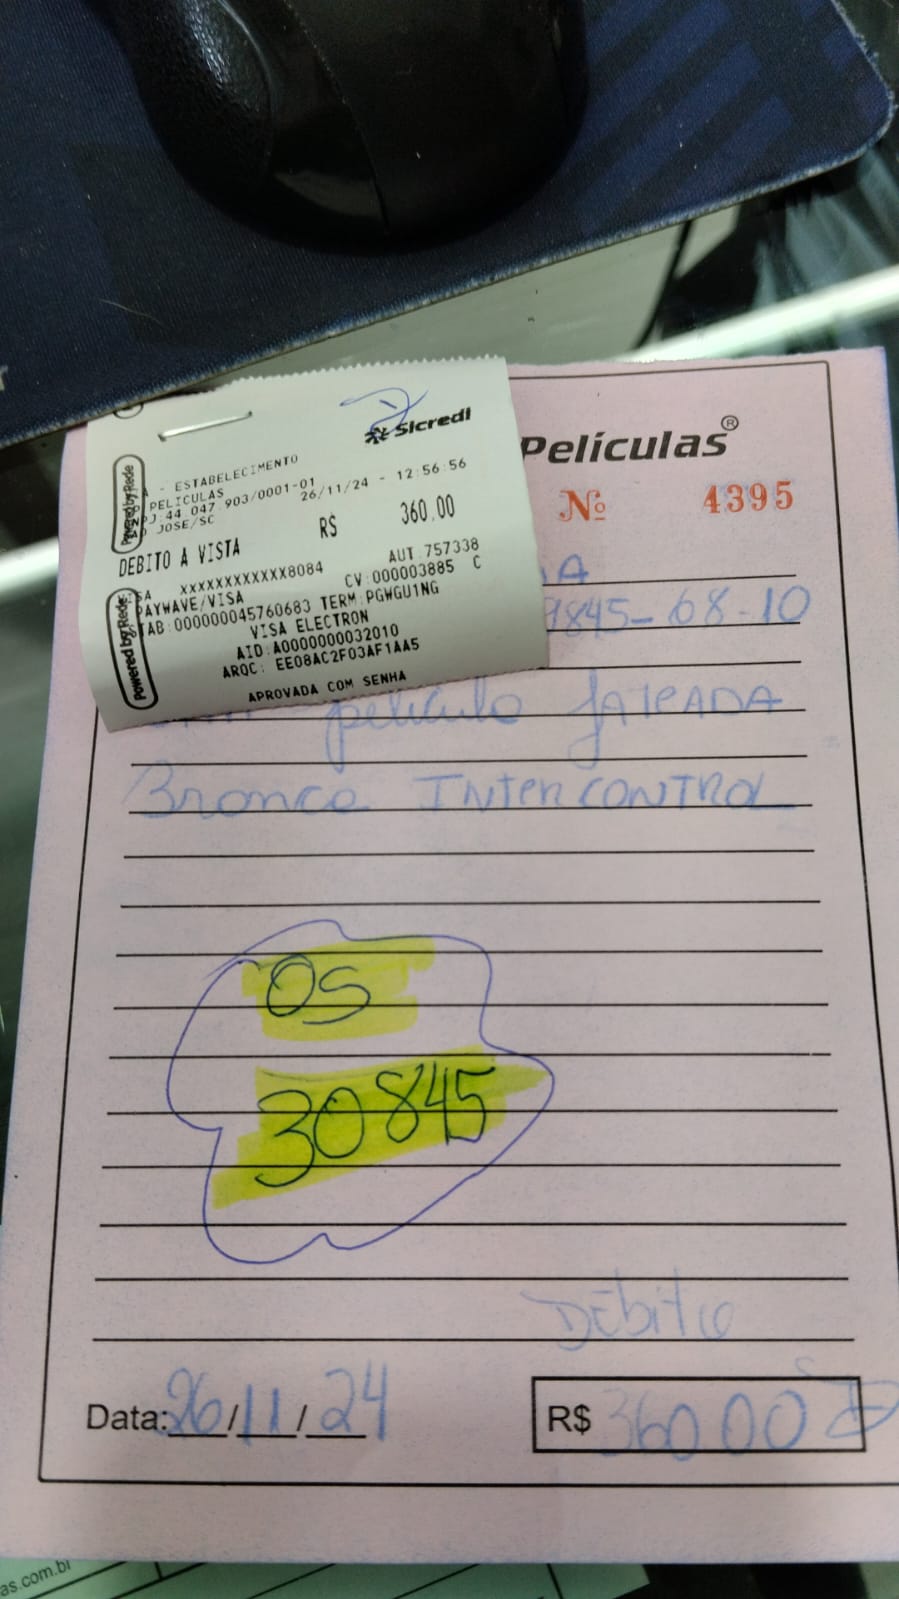 Sicredi
- ESTABELECIMENTO
PELICULAS
PJ:44.047.903/0001-01
JOSE/SC
26/11/24 - 12:56:56
R$ 360.00
DEBITO A VISTA
SA XXXXXXXXXXXX8084 AUT.757338
PAYWAVE/VISA CV:000003885 C
TAB:000000045760683 TERM:PGWGU1NG
VISA ELECTRON
AID:A0000000032010
ARQC: EE08AC2F03AF1AA5
APROVADA COM SENHA
Powered by Rede
Powered by Rede
Películas®
Nº 4395
A
9845-68-10
película JATEADA
Bronco INTERCONTROL
OS
30845
Débito
Data: 26/11/24
R$ 360 00
as.com.br